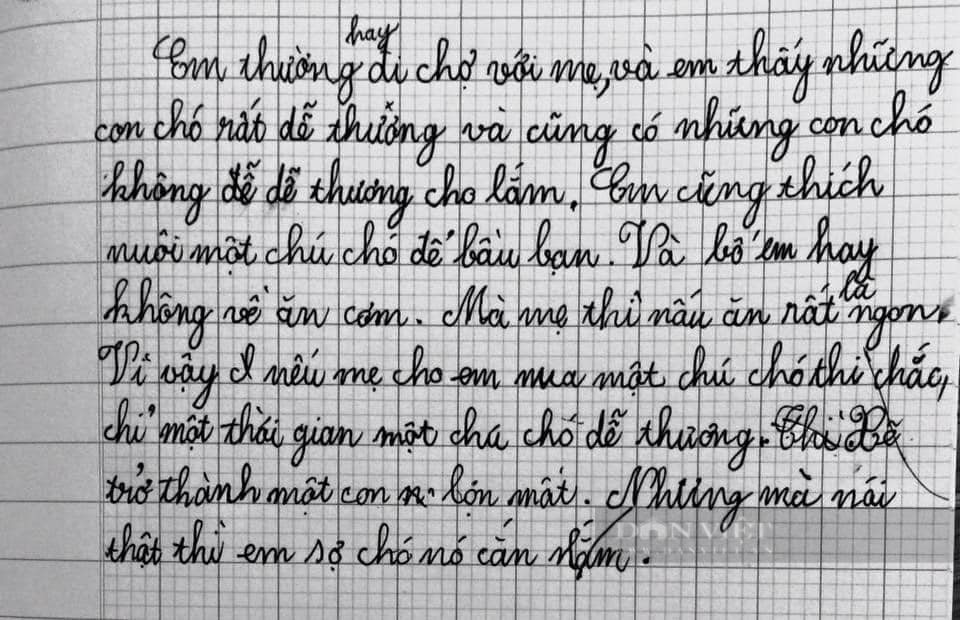 hay
Em thường đi chợ với mẹ, và em thấy những
con chó rất dễ thưởng và cũng có những con chó
không dễ dễ thương cho lắm. Em cũng thích
nuôi một chú chó để bầu bạn. Và bố em hay
không về ăn cơm. Mà mẹ thì nấu ăn rất là ngon.
Vì vậy nếu mẹ cho em mua một chú chó thì chắc,
chỉ một thời gian một chú chó dễ thương. Thì sẽ
trở thành một con lợn mất. Nhưng mà nói
thật thì em sợ chó nó cắn lắm.
DÂN VIỆT